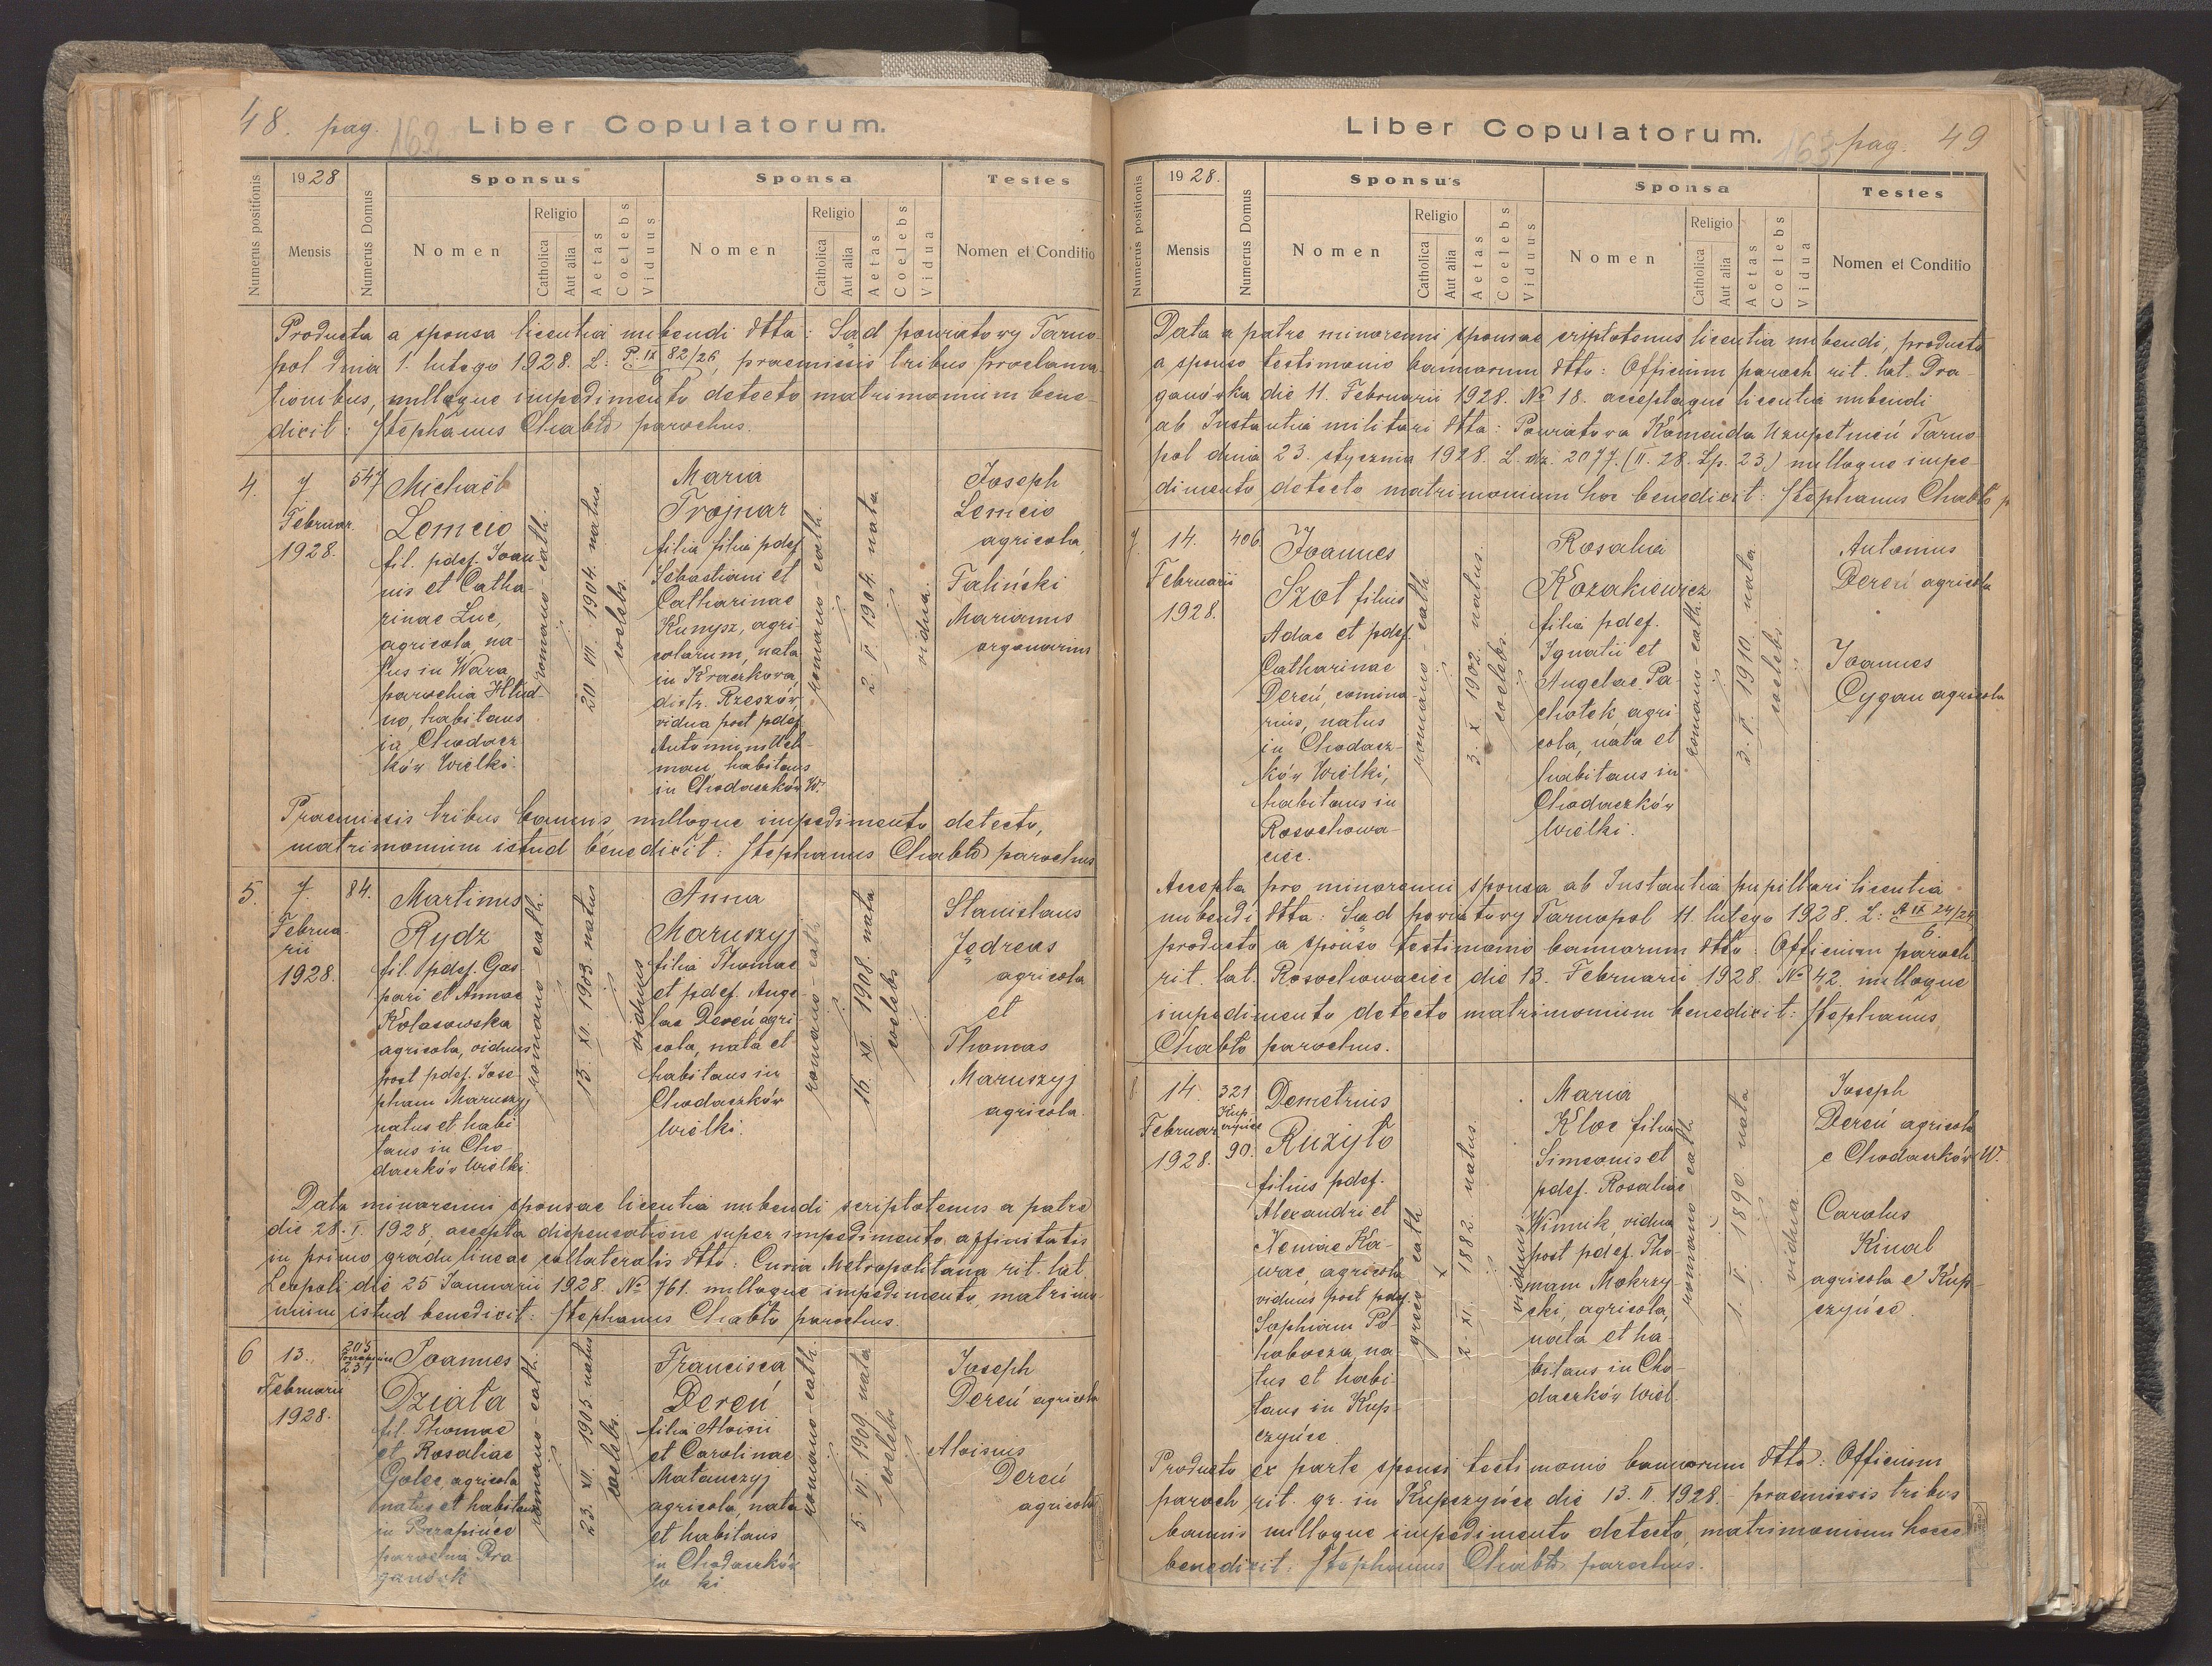 48. pag. 162
Liber Copulatorum.
Numerus positionis
1928
Mensis
Numerus Domus
Sponsus
Nomen
Religio
Catholica
Aut alia
Aetas
Coelebs
Viduus
Sponsa
Nomen
Religio
Catholica
Aut alia
Aetas
Coelebs
Vidua
Testes
Nomen et Conditio
Producta a sponsa licentia nubendi dtto: Sąd powiatowy Tarno-
pol dnia 1. lutego 1928. L: P. IX 82/26, praemissis tribus proclama-
tionibus, nulloque impedimento detecto matrimonium bene-
dixit: Stephanus Chabło parochus.
4.
7
Februar.
1928.
547
Michaël
Lemcio
fil. pdef. Joan
nis et Catha-
rinae Luc,
agricola, na-
tus in Wara
parochia Hłud
no, habitans
in Chodacz
ków Wielki.
romano-cath.
20. VII. 1904. natus.
coelebs.
Maria
Trojnar
filia filia pdef.
Sebastiani et
Catharinae
Kunysz, agri-
colarum, nata
in Kraczkowa,
distr. Rzeszów,
vidua post pdef.
man, habitans
in Chodaczków W.
romano-cath.
2. V. 1904. nata
vidua.
Joseph
Lemcio
agricola,
Faliński
Marianus
organarius
Praemissis tribus bannis, nulloque impedimento detecto,
matrimonium istud benedixit: Stephanus Chabło parochus
5.
7.
Februa-
rii
1928.
84.
Martinus
Rydz
fil. pdef. Gas-
pari et Annae
Kolasowska
agricola, viduus
post pdef. Jose-
pham Maruszyj
natus et habi
tans in Cho-
daczków Wielki.
romano-cath.
13. XI. 1903. natus
viduus
Anna
Maruszyj
filia Thomae
et pdef. Ange-
lae Dereń agri-
cola, nata et
habitans in
Chodaczków
Wielki.
romano-cath
16. XI. 1908. nata
coelebs
Stanislaus
Jędreas
agricola
et
Thomas
Maruszyj
agricola.
Data minorenni sponsae licentia nubendi scriptotenus a patre
die 28. I. 1928, accepta dispensatione super impedimento affinitatis
in primo gradu lineae collateralis dtto: Curia Metropolitana rit. lat.
Leopoli die 25 Januarii 1928. No 761. nulloque impedimento, matrimo
nium istud benedixit: Stephanus Chabło parochus.
6
13.
Februarii
1928.
205
231
Joannes
Działa
fil. Thomae
et Rosaliae
Golec, agricola
natus et habitans
in
parochia Dra
ganówk
romano-cath.
23. XII. 1905. natus
coelebs.
Francisca
Dereń
filia Aloisii
et Carolinae
Matanczyj
agricola, nata
et habitans
in Chodaczków
romano-cath
5. VI. 1909. nata
coelebs
Joseph
Dereń agricola
Aloisius
Dereń
agricola
Liber Copulatorum.
163 pag. 49
Numerus positionis
1928.
Mensis
Numerus Domus
Sponsus
Nomen
Religio
Catholica
Aut alia
Aetas
Coelebs
Viduus
Sponsa
Nomen
Religio
Catholica
Aut alia
Aetas
Coelebs
Vidua
Testes
Nomen et Conditio
Data a patre minorenni sponsae scriptotenus licentia nubendi, producto
a sponso testimonio bannorum dtto: Officium paroch. rit. lat. Dra-
ganówka die 11. Februarii 1928. No 18. acceptaque licentia nubendi
ab Instantia militari dtto: Powiatowa Komenda Uzupełnień Tarno-
pol dnia 23. stycznia 1928. L. dz. 2077. (II. 28. Lp. 23.) nulloque impe-
dimento detecto matrimonium hoc benedixit: Stephanus Chabło p
7.
14.
Februarii
1928.
406
Joannes
Szot filius
Adae et pdef.
Catharinae
Dereń,
natus
in Chodacz-
ków Wielki,
habitans in
Rosochowa-
ciec.
romano-cath
3. X. 1902. natus.
coelebs.
Rosalia
Kozakiewicz
filia pdef.
Ignatii et
Angelae Pa-
chotek, agri-
cola, nata et
habitans in
Chodaczków
Wielki.
romano-cath.
3. V. 1910. nata
coelebs
Antonius
Dereń agricola
Joannes
Cygan agricola
Accepta pro minorenni sponsa ab Instantia pupillari licentia
nubendi dtto: Sąd powiatowy Tarnopol 11. lutego 1928. L: A IX 24/24
6.
producto a sponso testimonio bannorum dtto: Officium paroch.
rit. lat. Rosochowaciec die 13. Februarii 1928. No 42. nulloque
impedimento detecto matrimonium benedixit: Stephanus
Chabło parochus.
8
14.
Februar
1928.
321
Kup-
czyńce
90.
Demetrius
Ruzyło
filius pdef.
Alexandri et
Xeniae Ka-
wac, agricola
viduus post pdef.
Sophiam Po
hobocza, na-
tus et habi
tans in Kup-
czyńce.
greco-cath
2. XI. 1882. natus.
viduus
Maria
Kloc filia
Simeonis et
pdef. Rosaliae
Winnik, vidua
post pdef. Tho-
mam Mokrzy-
cki, agricola,
nata et ha-
bitans in Cho-
daczków Wiel.
romano cath.
1. V. 1890 nata
vidua
Joseph
Dereń agricola
e Chodaczków W.
Carolus
Kinal
agricola e Kup-
czyńce.
Producto ex parte sponsi testimonio bannorum dtto: Officium
paroch rit. gr. in Kupczyńce die 13. II. 1928. - praemissis tribus
bannis nulloque impedimento detecto, matrimonium hocce
benedixit: Stephanus Chabło parochus.